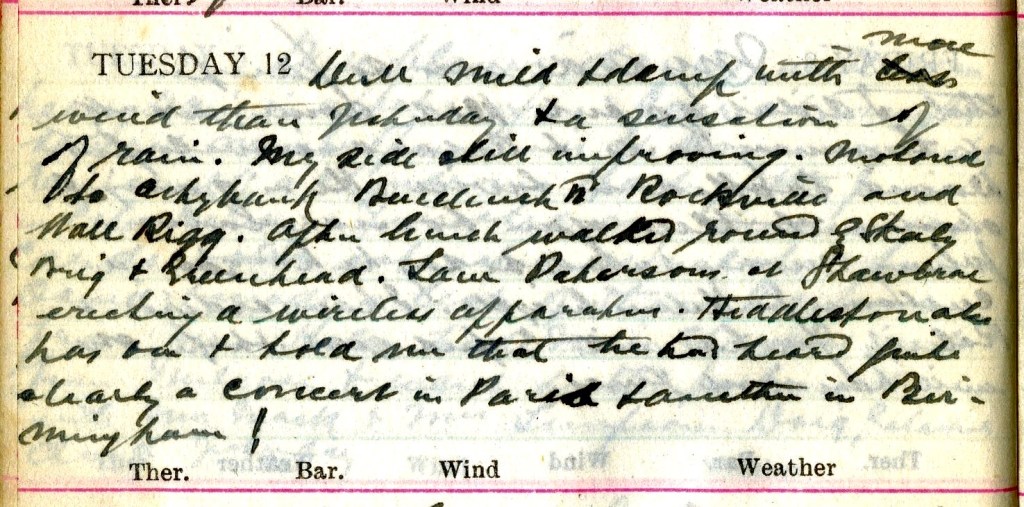 Ther. Bar. Wind Weather
more
TUESDAY 12 Dull mild & damp with less
wind than yesterday & a sensation of
of rain. My side still improving. Motored
to Rockville and
Wall Rigg. After lunch walked round
Brig & Greenhead. Saw Patersons at
erecting a wireless apparatus. Hiddleston also
has one & told me that he had heard quite
clearly a concert in Paris & another in Bir-
mingham!
Ther. Bar. Wind Weather